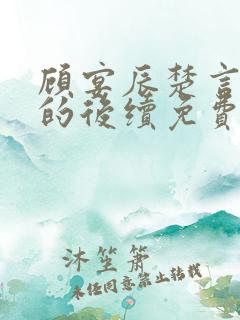 顾宴辰楚言
的後續免費
沐笙箫
未经同意禁止转载